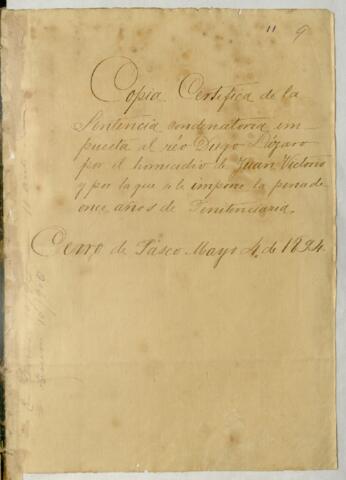 11 9
Copia Certifica de la
Sentencia condenatoria im-
puesta al reo Diego Lázaro
por el homicidio de Juan Victorio
y por la que se le impone la pena de
once años de Penitenciaria.
Cerro de Pasco Mayo 4 de 1894.